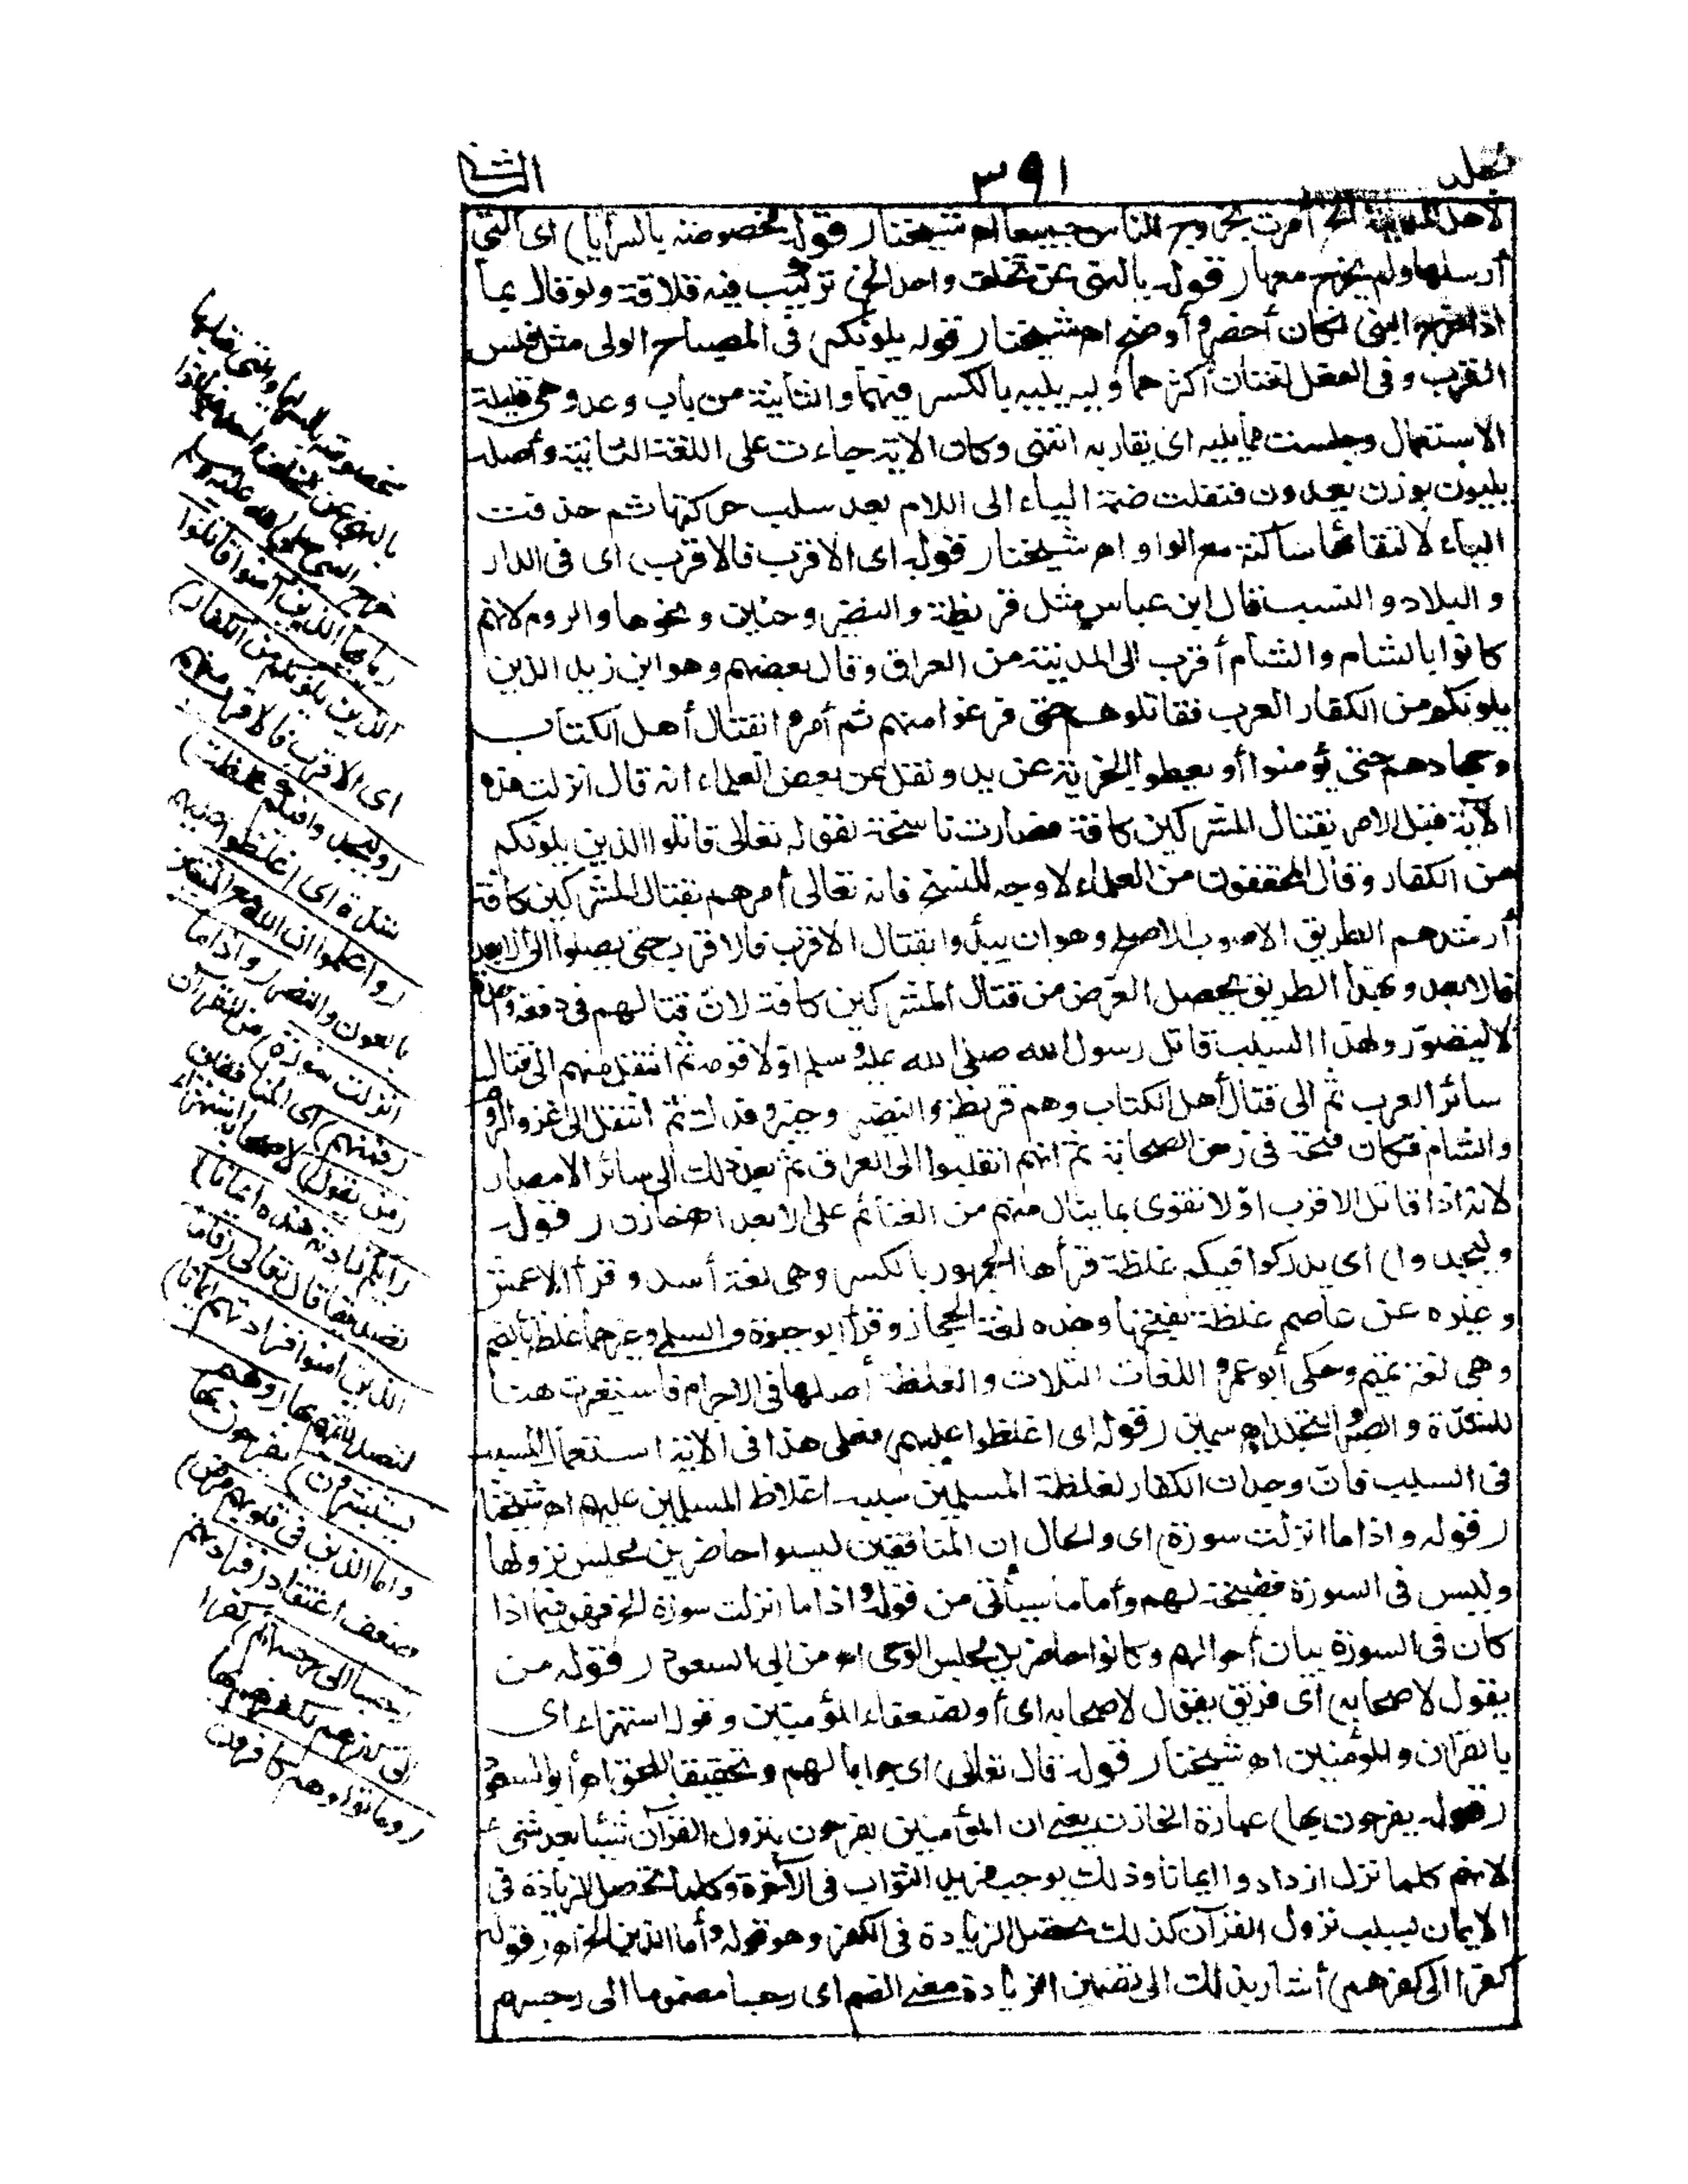 مجلد ٣٩١ الثا
لاهل المدينة الخ أمرت بخروج الناس جميعا اه شيخنا (قوله مخصوصة بالسرايا) اى التى
أرسلها ولم يخرج معها (قوله بالنهى عن تخلف واحد الخ) تركيب فيه قلاقة ولو قال بما
اذا خرج النبى لكان أخصر وأوضح اه شيخنا (قوله يلونكم) فى المصباح الولى مثل فلس
القرب وفى الفعل لغتان أكثرهما وليه يليه بالكسر فيهما والثانية من باب وعد وهى قليلة
الاستعمال وجلست مما يليه اى يقاربه انتهى وكان الاية جاءت على اللغة الثانية وأصله
يليون بوزن يعدون فنقلت ضمة الياء الى اللام بعد سلب حركتها ثم حذفت
الياء لالتقائها ساكنة مع الواو اه شيخنا (قوله اى الاقرب فالاقرب) اى فى الدار
والبلاد والنسب قال ابن عباس مثل قريظة والنضير وحنين ونحوها والروم لانهم
كانوا بالشام والشام أقرب الى المدينة من العراق وقال بعضهم وهو ابن زيد الذين
يلونكم من الكفار العرب فقاتلوهم حتى فرغوا منهم ثم أمروا بقتال أهل الكتاب
وجهادهم حتى يؤمنوا أو يعطوا الجزية عن يد ونقل عن بعض العلماء انه قال انزلت هذه
الآية قبل الامر بقتال المشركين كافة فصارت ناسخة لقوله تعالى قاتلوا الذين يلونكم
من الكفار وقال المحققون من العلماء لا وجه للنسخ فانه تعالى أمرهم بقتال المشركين كافة
أرشدهم الطريق الاصوب الاصلح وهو ان يبدأوا بقتال الاقرب فالاقرب حتى يصلوا الى الابعد
فالابعد وبهذا الطريق يحصل الغرض من قتال المشركين كافة لان قتالهم فى دفعة واحدة
لا يتصور ولهذا السبب قاتل رسول الله صلى الله عليه وسلم اولا قومه ثم انتقل منهم الى قتال
سائر العرب ثم الى قتال أهل الكتاب وهم قريظة والنضير وخيبر وفدك ثم انتقل الى غزو الروم
والشام فكان فتحه فى زمن الصحابة ثم انهم انقلبوا الى العراق ثم بعد ذلك الى سائر الامصار
لانه اذا قاتل الاقرب اولا تقوى بما ينال منهم من الغنائم على الابعد اه خازن (قوله
وليجدوا) اى يدركوا فيكم غلظة قرأها الجمهور بالكسر وهى لغة أسد وقرأ الاعمش
وغيره عن عاصم غلظة بفتحها وهذه لغة الحجاز وقرأ ابو حيوة والسلمى وغيرهما غلظة بالضم
وهى لغة تميم وحكى أبو عمرو اللغات الثلاث والغلظة أصلها فى الاجرام فاستعيرت هنا
للشدة والصبر والتجلد اه سمين (قوله اى اغلظوا عليهم) فعلى هذا فى الاية استعمال المسبب
فى السبب فان وجدان الكفار لغلظة المسلمين سببه اغلاظ المسلمين عليهم اه شيخنا
(قوله واذا ما انزلت سورة) اى والحال إن المنافقين ليسوا حاضرين مجلس نزولها
وليس فى السورة فضيحة لهم وأما ما سيأتى من قوله واذا ما انزلت سورة الخ فهو فيما اذا
كان فى السورة بيان أحوالهم وكانوا حاضرين مجلس الوحى اه من ابى السعود (قوله من
يقول لاصحابه) اى فريق يقول لاصحابه اى أو لضعفاء المؤمنين وقوله استهزاء اى
بالقرآن وللمؤمنين اه شيخنا (قوله قال تعالى) اى جوابا لهم وتحقيقا للحق اه أبو السعود
(قوله يفرحون بها) عبارة الخازن يعنى ان المؤمنين يفرحون بنزول القرآن شيئا بعد شئ
لانهم كلما نزل ازدادوا ايمانا وذلك يوجب مزيد الثواب فى الآخرة وكلما تحصل الزيادة فى
الايمان بسبب نزول القرآن كذلك تحصل الزيادة فى الكفر وهو قوله وأما الذين الخ اه (قوله
كفرا الى كفرهم) أشار بذلك الى تضمين الزيادة معنى الضم اى رجسا مضموما الى رجسهم
مخصوصة بالسرايا والتى قبلها
بالنهى عن تخلف احد فيما اذا
خرج النبى صلى الله عليه وسلم
(يا أيها الذين آمنوا قاتلوا
الذين يلونكم من الكفار)
اى الاقرب فالاقرب منهم
(وليجدوا فيكم غلظة)
شدة اى اغلظوا عليهم
(واعلموا ان الله مع المتقين)
بالعون والنصر (واذا ما
انزلت سورة) من القرآن
(فمنهم) اى المنافقين
(من يقول) لاصحابه استهزاء
(ايكم زادته هذه ايمانا)
تصديقا قال تعالى (فاما
الذين امنوا فزادتهم ايمانا)
لتصديقهم بها (وهم
يستبشرون) يفرحون بها
(واما الذين فى قلوبهم مرض)
ضعف اعتقاد (فزادتهم
رجسا الى رجسهم) كفرا
الى كفرهم لكفرهم بها
(وماتوا وهم كافرون